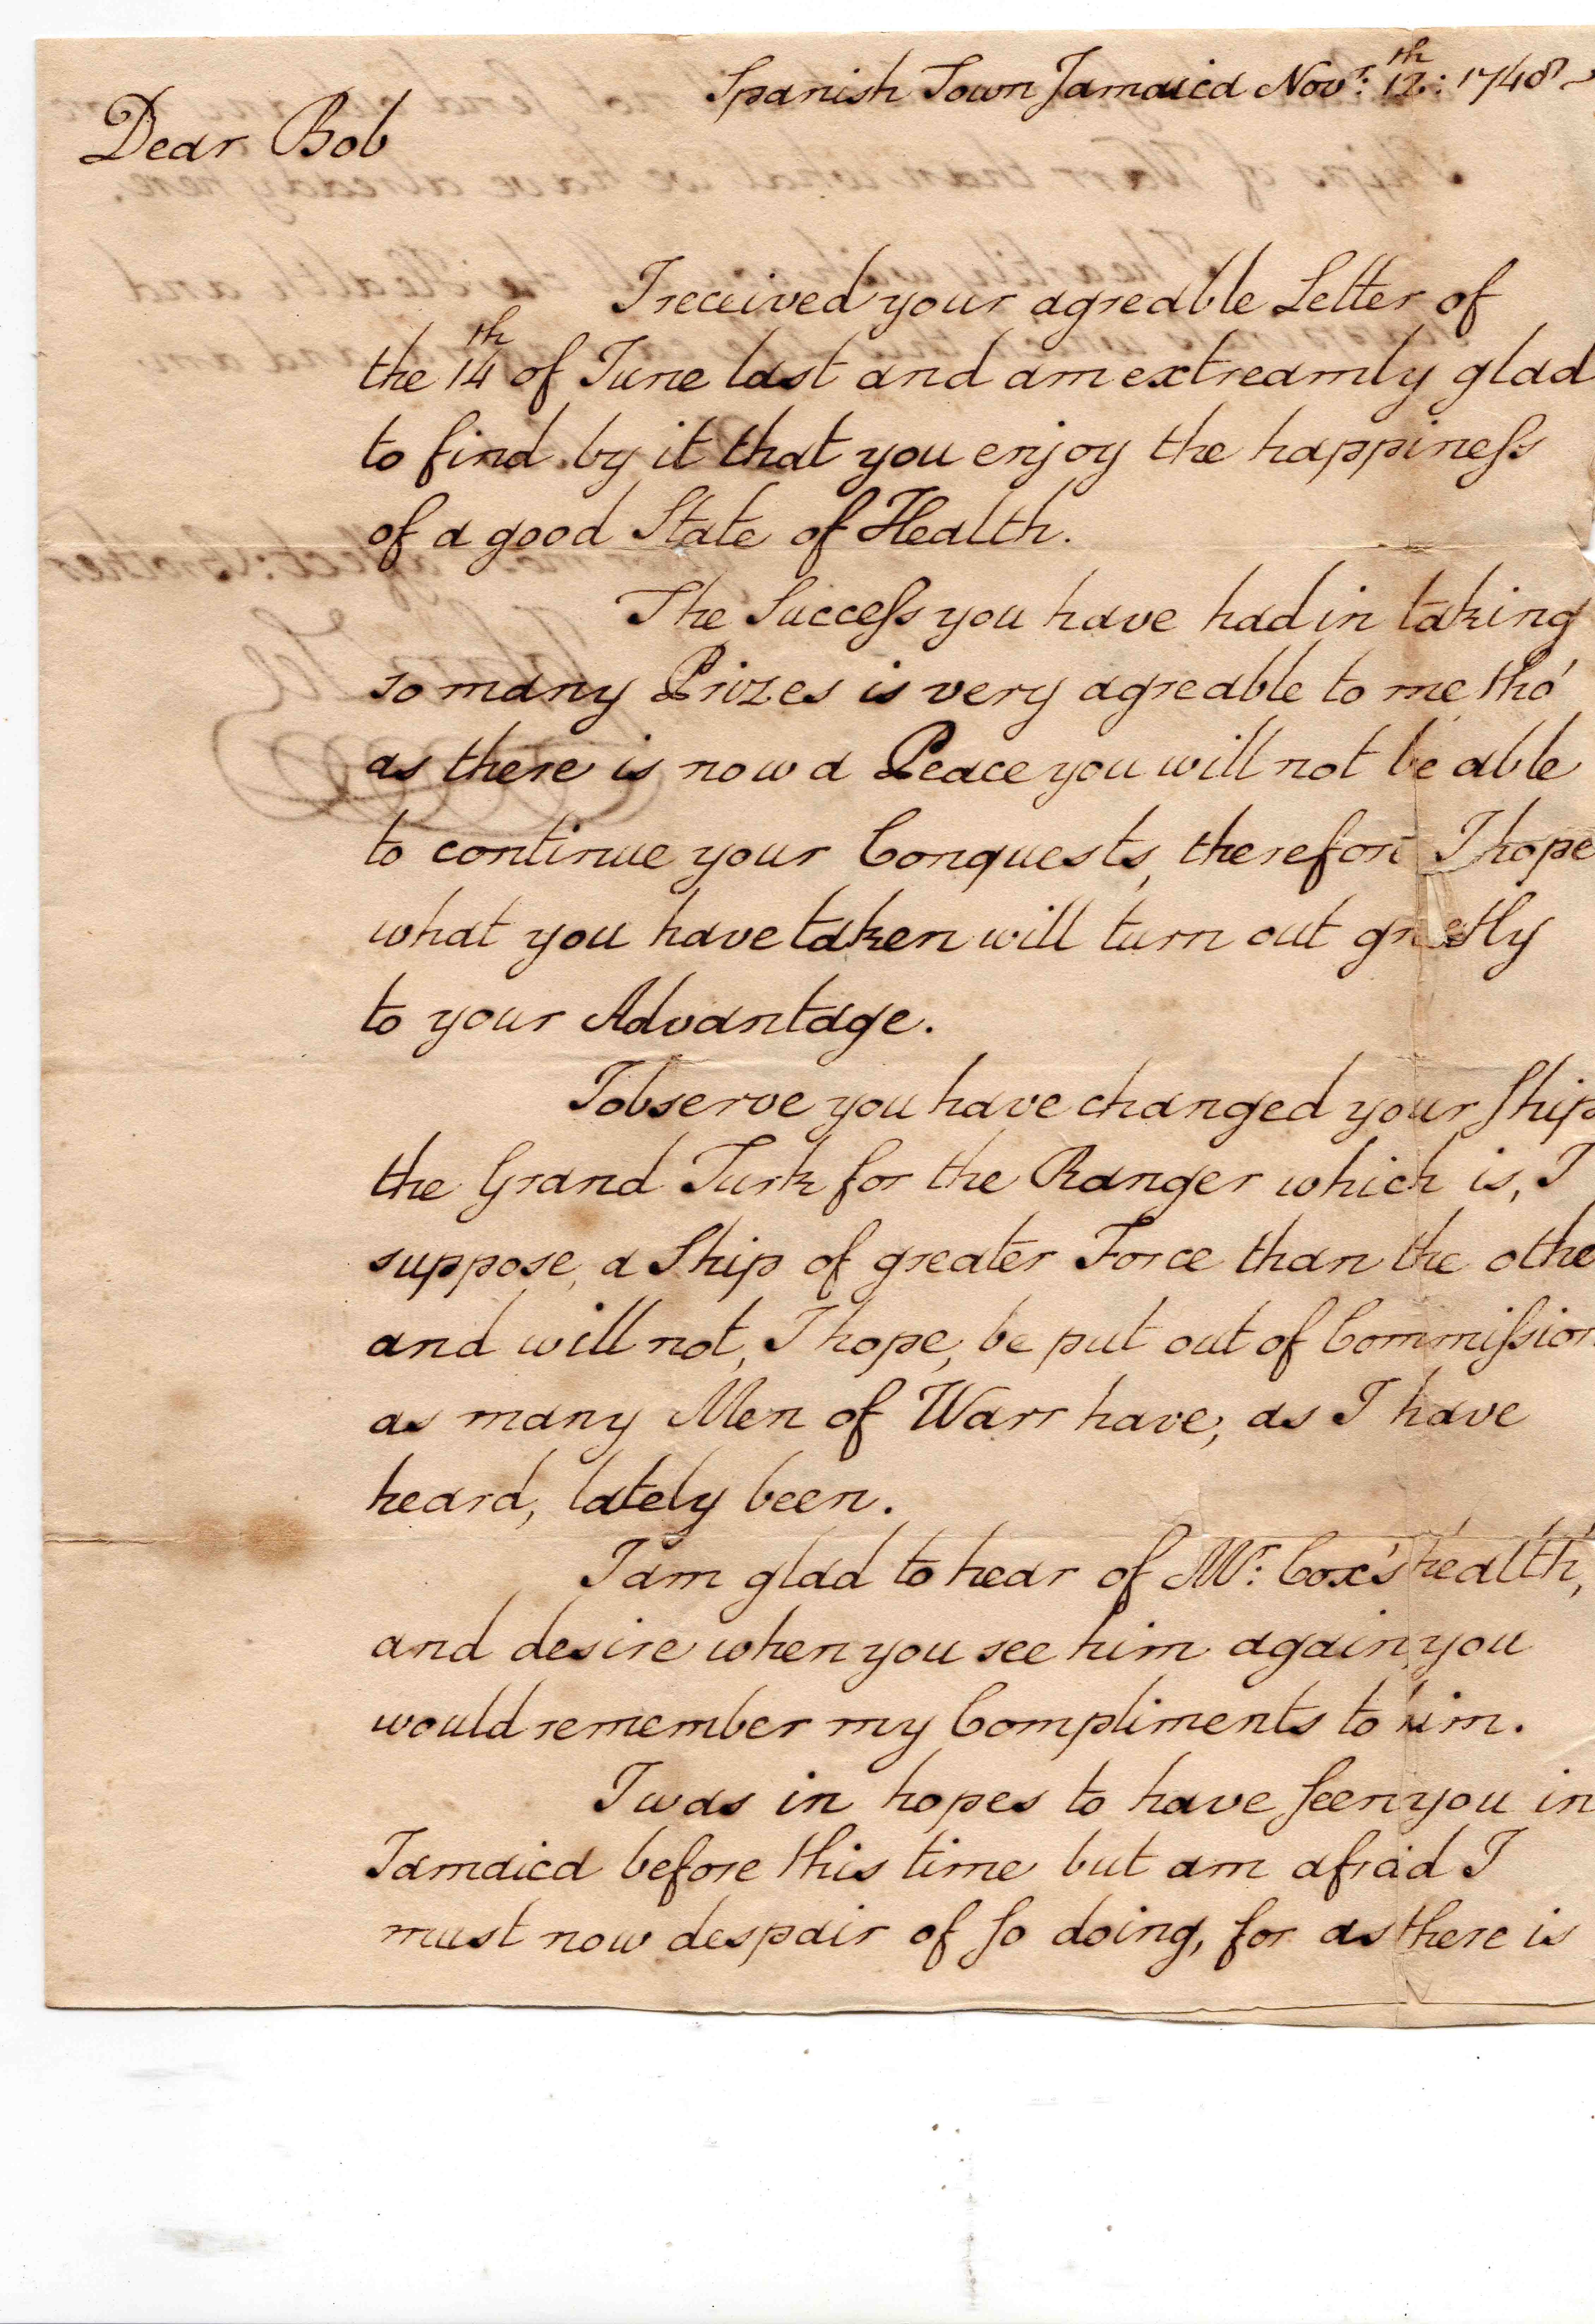 Spanish Town Jamaica Novr: 12th: 1748
Dear Bob
I received your agreable Letter of
the 14th of June last and am extreamly glad
to find by it that you enjoy the happineſs
of a good State of Health.
The Succeſs you have had in taking
so many Prizes is very agreable to me tho'
as there is now a Peace you will not be able
to continue your Conquests, therefore I hope
what you have taken will turn out greatly
to your Advantage.
I observe you have changed your Ship
the Grand Turk for the Ranger which is, I
suppose, a Ship of greater Force than the othe
and will not, I hope, be put out of Commiſsion
as many Men of Warr have, as I have
heard, lately been.
I am glad to hear of Mr: Cox's health,
and desire when you see him again, you
would remember my Compliments to him.
I was in hopes to have ſeen you in
Jamaica before this time but am afraid I
must now despair of ſo doing, for as there is